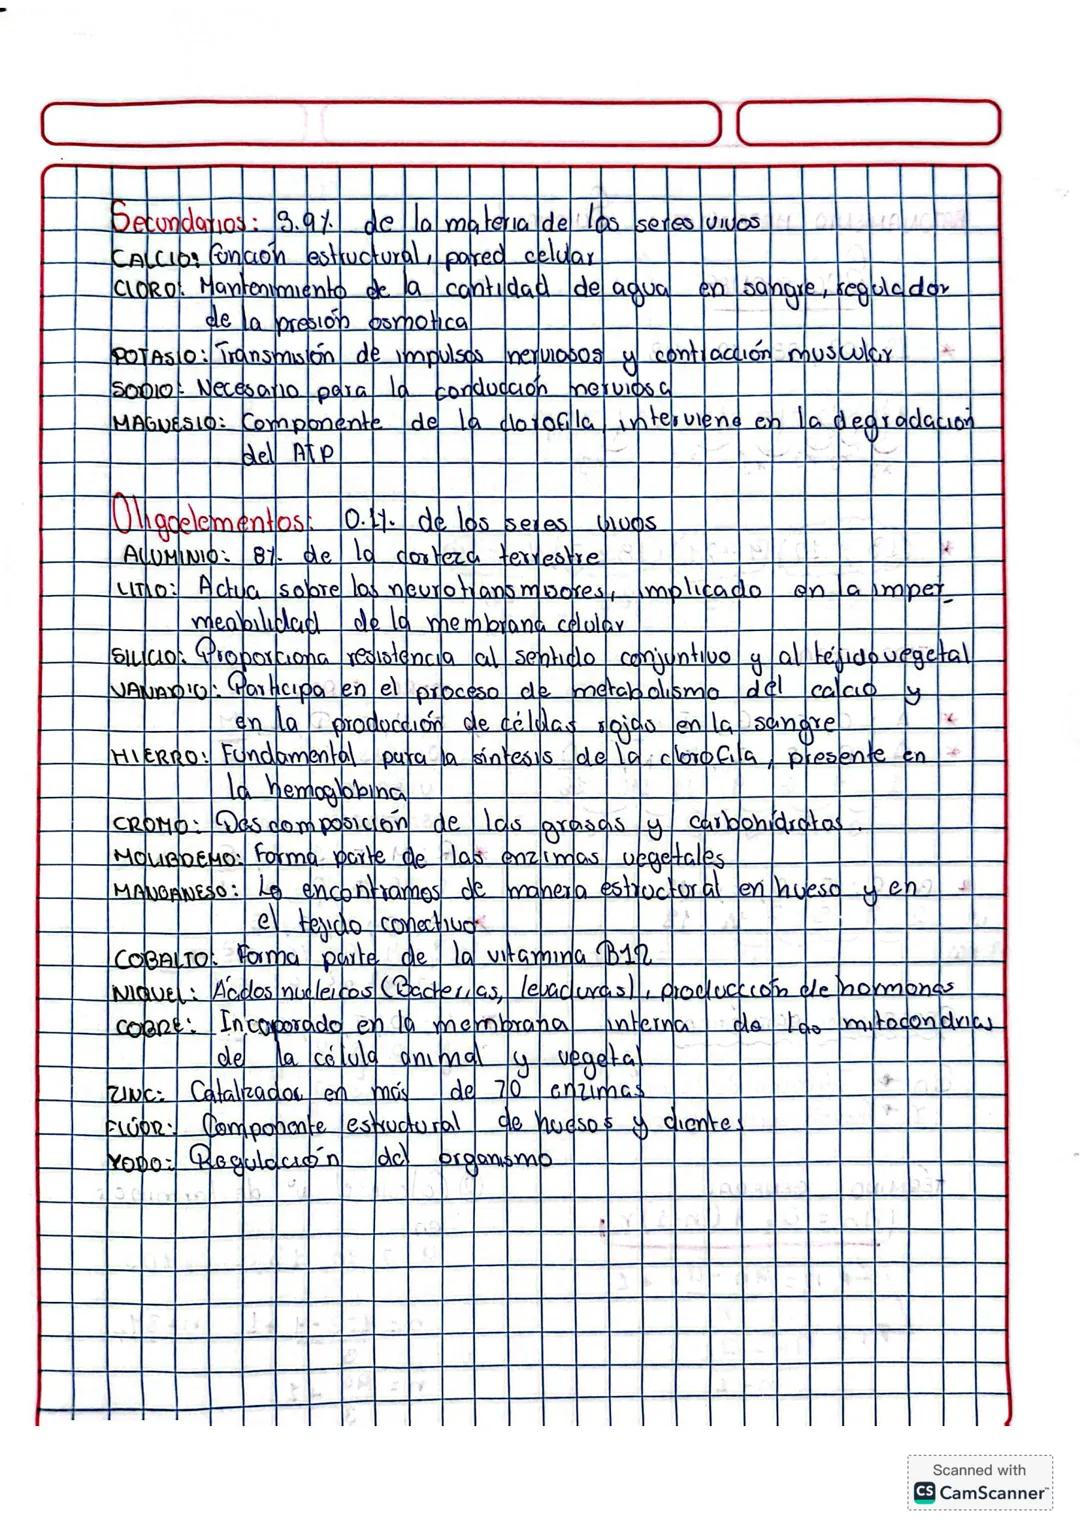 Secundarios: 3.9% de la materia de los seres vivos
CALCIO: función estructural, pared celular
CLORO: Mantenimiento de la cantidad de agua en sangre, regulador
de la presión osmotica
POTASIO: Transmisión de impulsos nerviosos y contracción muscular
SODIO: Necesario para la conducción nerviosa
MAGNESIO: Componente de la clorofila, interviene en la degradación
del ATP
Oligoelementos: 0.1% de los seres vivos
ALUMINIO: 8% de la corteza terrestre
LITIO: Actua sobre los neurotransmisores, implicado en la imper_
meabilidad de la membrana celular
SILICIO: Proporciona resistencia al sentido conjuntivo y al tejido vegetal
VANADIO: Participa en el proceso de metabolismo del calcio y
en la producción de células rojas en la sangre
HIERRO: Fundamental para la síntesis de la clorofila, presente en
la hemoglobina
CROMO: Descomposición de las grasas y carbohidratos.
MOLIBDEMO: Forma parte de las enzimas vegetales
MANGANESO: Lo encontramos de manera estructural en hueso y en
el tejido conectivo
COBALTO: Forma parte de la vitamina B12
NIQUEL: Acidos nucleicos (Bacterias, levaduras), producción de hormonas
COBRE: Incoporado en la membrana interna de las mitocondrias
de la célula animal y vegetal
ZINC: Catalizador en más de 70 enzimas
FLÚOR: Componente estructural de huesos y dientes
YODO: Regulación del organismo
Scanned with
CS CamScanner